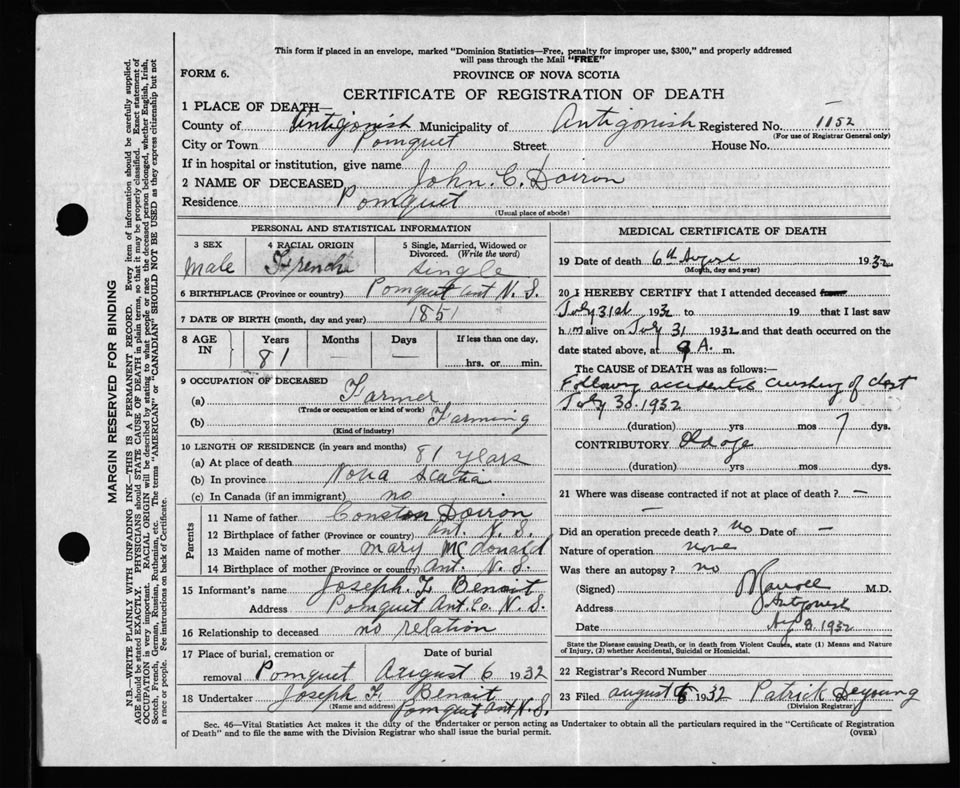 This form if placed in an envelope, marked "Dominion Statistics—Free, penalty for improper use, $300," and properly addressed
will pass through the Mail "FREE"
FORM 6.
PROVINCE OF NOVA SCOTIA
CERTIFICATE OF REGISTRATION OF DEATH
1 PLACE OF DEATH—
County of Antigonish Municipality of Antigonish Registered No. 1152
(For use of Registrar General only)
City or Town Pomquet Street House No.
If in hospital or institution, give name
2 NAME OF DECEASED John. C. Doiron
Residence Pomquet
(Usual place of abode)
PERSONAL AND STATISTICAL INFORMATION
3 SEX 4 RACIAL ORIGIN 5 Single, Married, Widowed or Divorced. (Write the word)
Male French Single
6 BIRTHPLACE (Province or country) Pomquet Ant N. S.
7 DATE OF BIRTH (month, day and year) 1851
8 AGE IN Years Months Days If less than one day,
81 — — hrs. or min.
9 OCCUPATION OF DECEASED
(a) Farmer
(Trade or occupation or kind of work)
(b) Farming
(Kind of industry)
10 LENGTH OF RESIDENCE (in years and months)
(a) At place of death 81 years
(b) In province Nova Scotia
(c) In Canada (if an immigrant) no
Parents
11 Name of father Doiron
12 Birthplace of father (Province or country) Ant. N. S.
13 Maiden name of mother Mary McDonald
14 Birthplace of mother (Province or country) Ant. N. S.
15 Informant's name Joseph. F. Benoit
Address Pomquet Ant. Co. N. S.
16 Relationship to deceased no relation
17 Place of burial, cremation or removal Date of burial
Pomquet August 6 1932
18 Undertaker Joseph F. Benoit
(Name and address)
Pomquet Ant N. S.
MEDICAL CERTIFICATE OF DEATH
19 Date of death 6th August 1932
(Month, day and year)
20 I HEREBY CERTIFY that I attended deceased from
July 31st 1932 to 19 that I last saw
him alive on July 31 1932 and that death occurred on
date stated above, at 9 A. m.
The CAUSE of DEATH was as follows:—
Following accidental crushing of chest
July 30. 1932
(duration) yrs mos 7 dys.
CONTRIBUTORY Old age
(duration) yrs mos dys.
21 Where was disease contracted if not at place of death? —
—
Did an operation precede death? No Date of —
Nature of operation none
Was there an autopsy? no
(Signed) M.D.
Address Antigonish
Date Aug 8. 1932
State the Disease causing Death, or in death from Violent Causes, state (1) Means and Nature of Injury, (2) whether Accidental, Suicidal or Homicidal.
22 Registrar's Record Number
23 Filed August 8 1932 Patrick Deyoung
(Division Registrar)
Sec. 46—Vital Statistics Act makes it the duty of the Undertaker or person acting as Undertaker to obtain all the particulars required in the "Certificate of Registration
of Death" and to file the same with the Division Registrar who shall issue the burial permit.
(OVER)
MARGIN RESERVED FOR BINDING
N.B.—WRITE PLAINLY WITH UNFADING INK—THIS IS A PERMANENT RECORD. Every item of information should be carefully supplied.
AGE should be stated EXACTLY. PHYSICIANS should STATE CAUSE OF DEATH in plain terms, so that it may be properly classified. Exact statement of
OCCUPATION is very important. RACIAL ORIGIN will be described by stating to what people or race the deceased person belonged, whether English, Irish,
Scotch, French, German, Russian, Ruthenian, etc. The terms "AMERICAN" or "CANADIAN" SHOULD NOT BE USED as they express citizenship but not
a race or people. See instructions on back of Certificate.